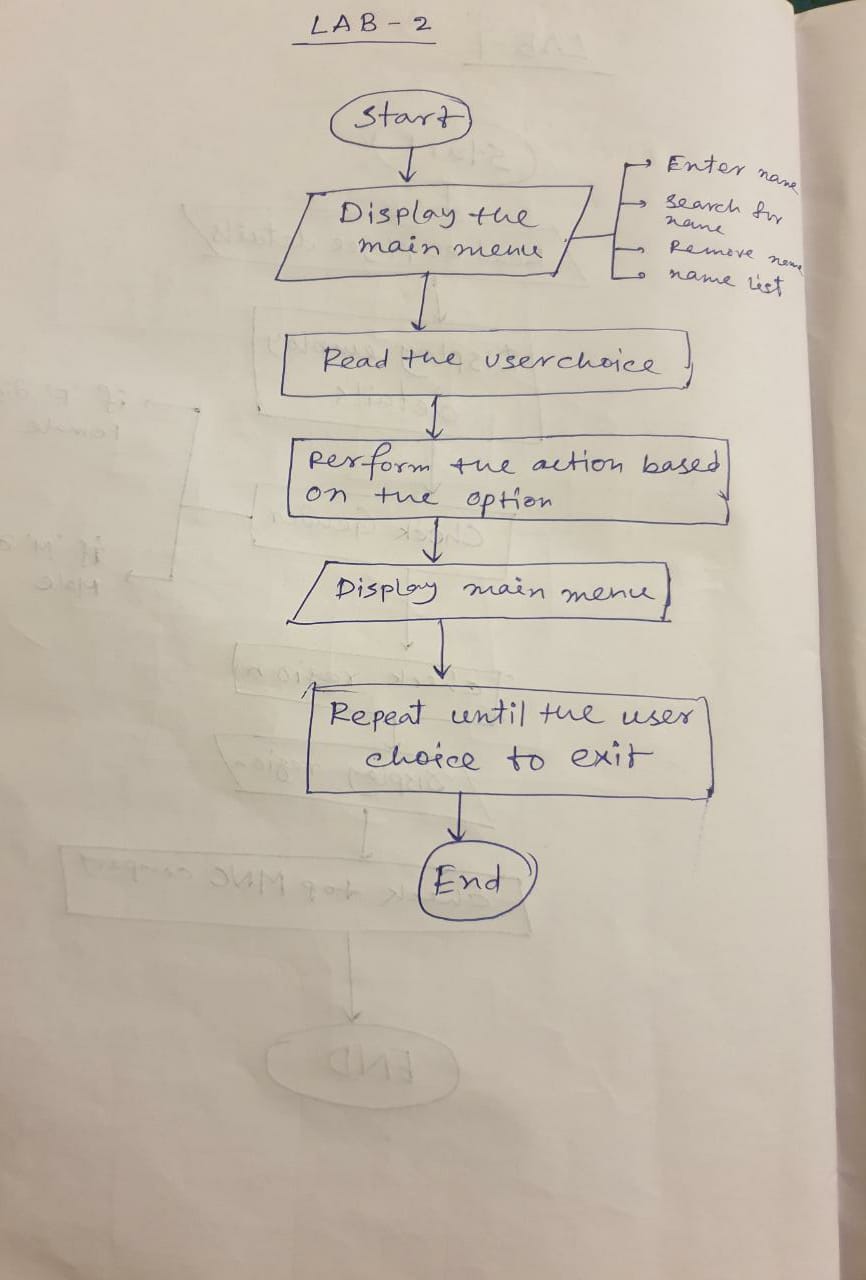 LAB-2
Start
Display the
main menu
Enter name
Search for
name
Remove name
name list
Read the userchoice
Perform the action based
on the option
Display main menu
Repeat until the user
choice to exit
End
END